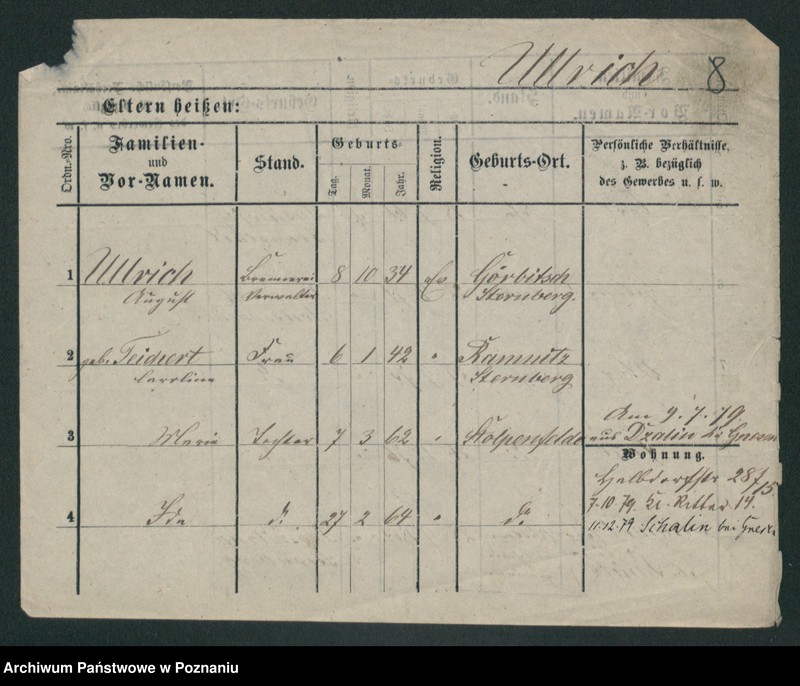 Ullrich 8
Eltern heißen:
Ordn.-Nro.
Familien-
und
Vor-Namen.
Stand.
Geburts-
Tag.
Monat.
Jahr.
Religion.
Geburts-Ort.
Persönliche Verhältnisse,
z. B. bezüglich
des Gewerbes u. s. w.
1 Ullrich Brennerei 8 10 34 Ev Görbitsch
August Verwalter Sternberg.
2 geb. Teichert Frau 6 1 42 " Kamnitz
Caroline Sternberg
Am 9.7.79
3 Marie Tochter 7 3 62 " Stolpenfelde aus Dzalin Kr Gnesen
Wohnung.
Halbdorfstr 28/15
7.10.79. Kl. Ritter 14.
4 Ida d. 27 2 64 " d. 11.12.79 Schalin bei
Archiwum Państwowe w Poznaniu